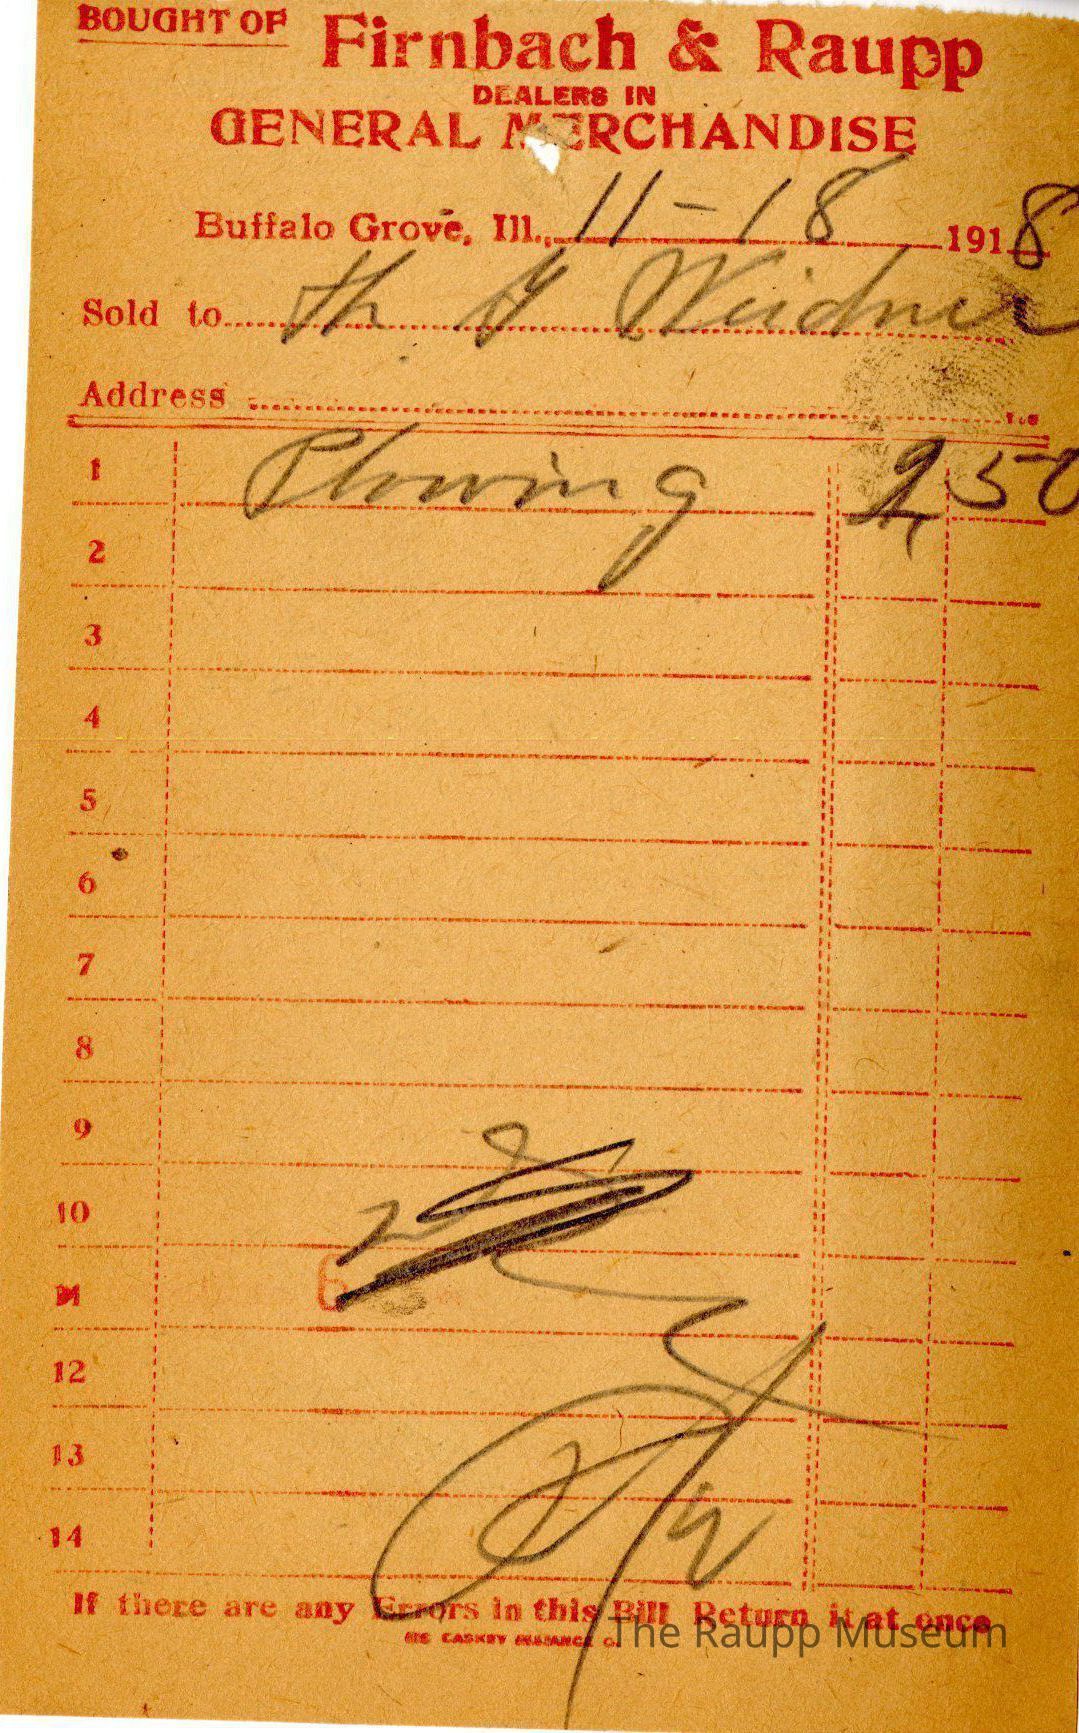 BOUGHT OF Firnbach & Raupp
DEALERS IN
GENERAL MERCHANDISE
Buffalo Grove, Ill., 11-18 1918
Sold to Weidner
Address
1 Plowing 2 50
2
3
4
5
6
7
8
9
10
11
12
13
14
If there are any Errors in this Bill Return it at once
The Raupp Museum